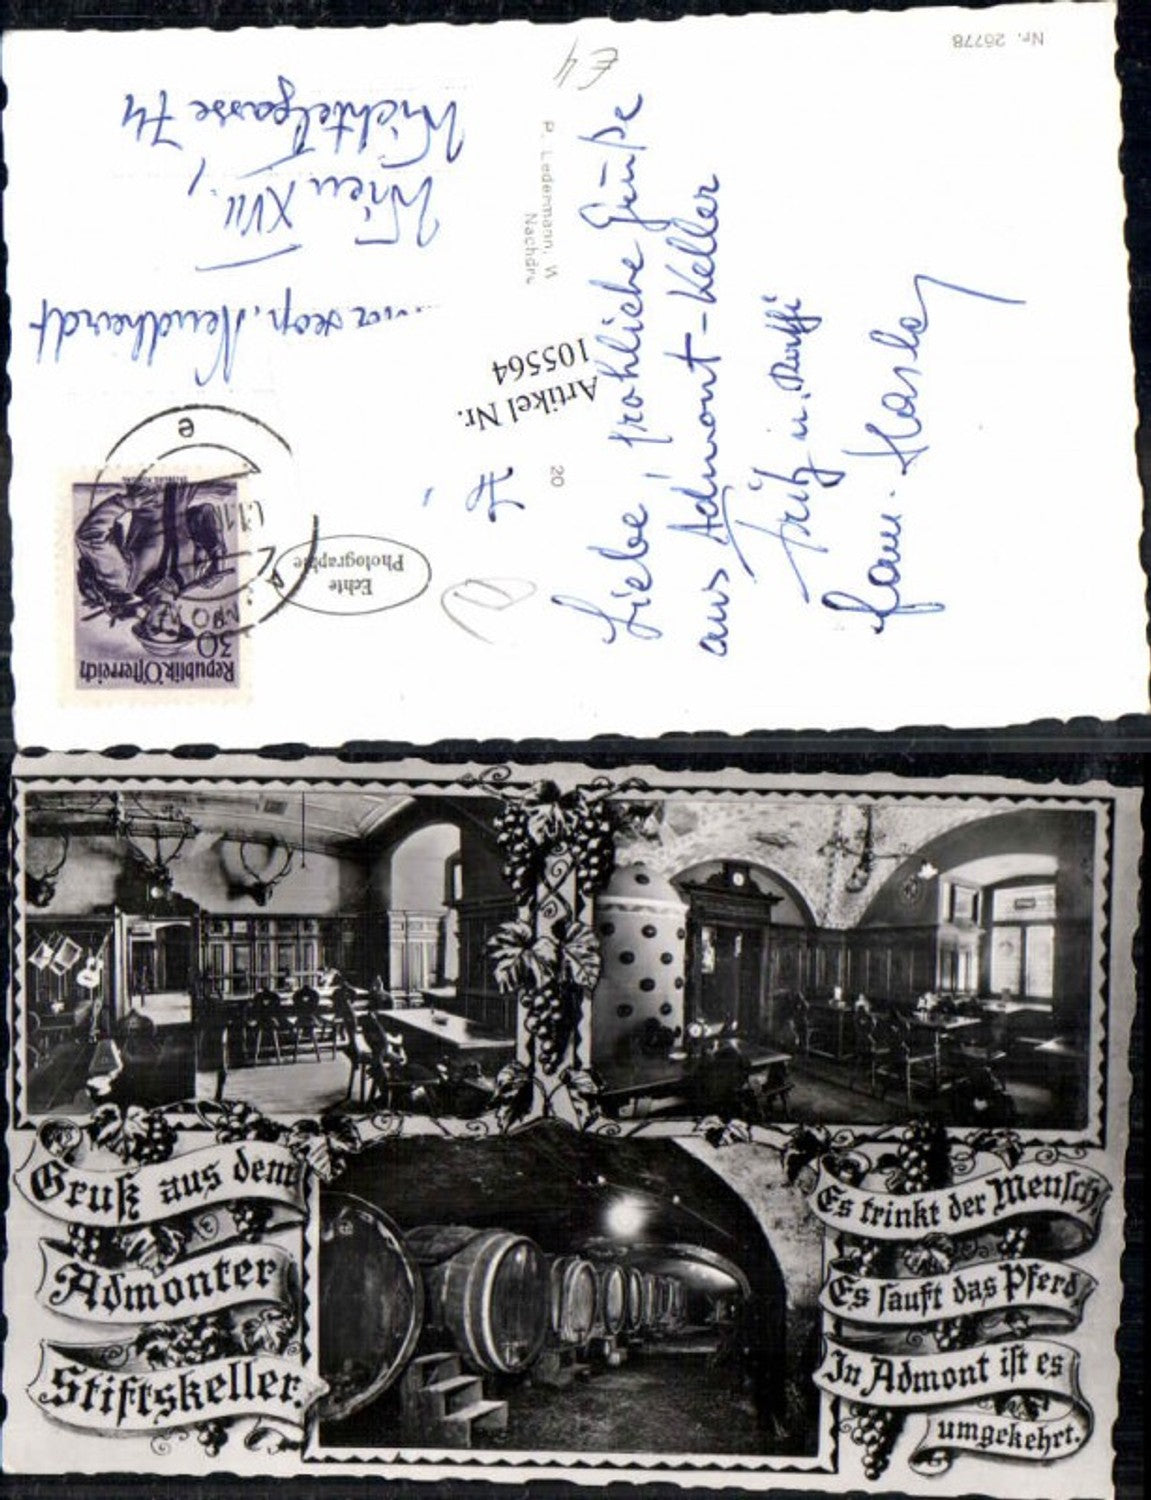 Nr. 26778
E4
Wien XVII.,
Wichtelgasse 74
P. Ledermann, W
Nachdru
Artikel Nr.
105564
20
Echte
Photographie
Republik Österreich
30
Liebe fröhliche Grüße
aus Admont-Keller
Fritz u.
Fam.
Gruß aus dem
Admonter
Stiftskeller.
Es trinkt der Mensch,
Es sauft das Pferd,
In Admont ist es
umgekehrt.